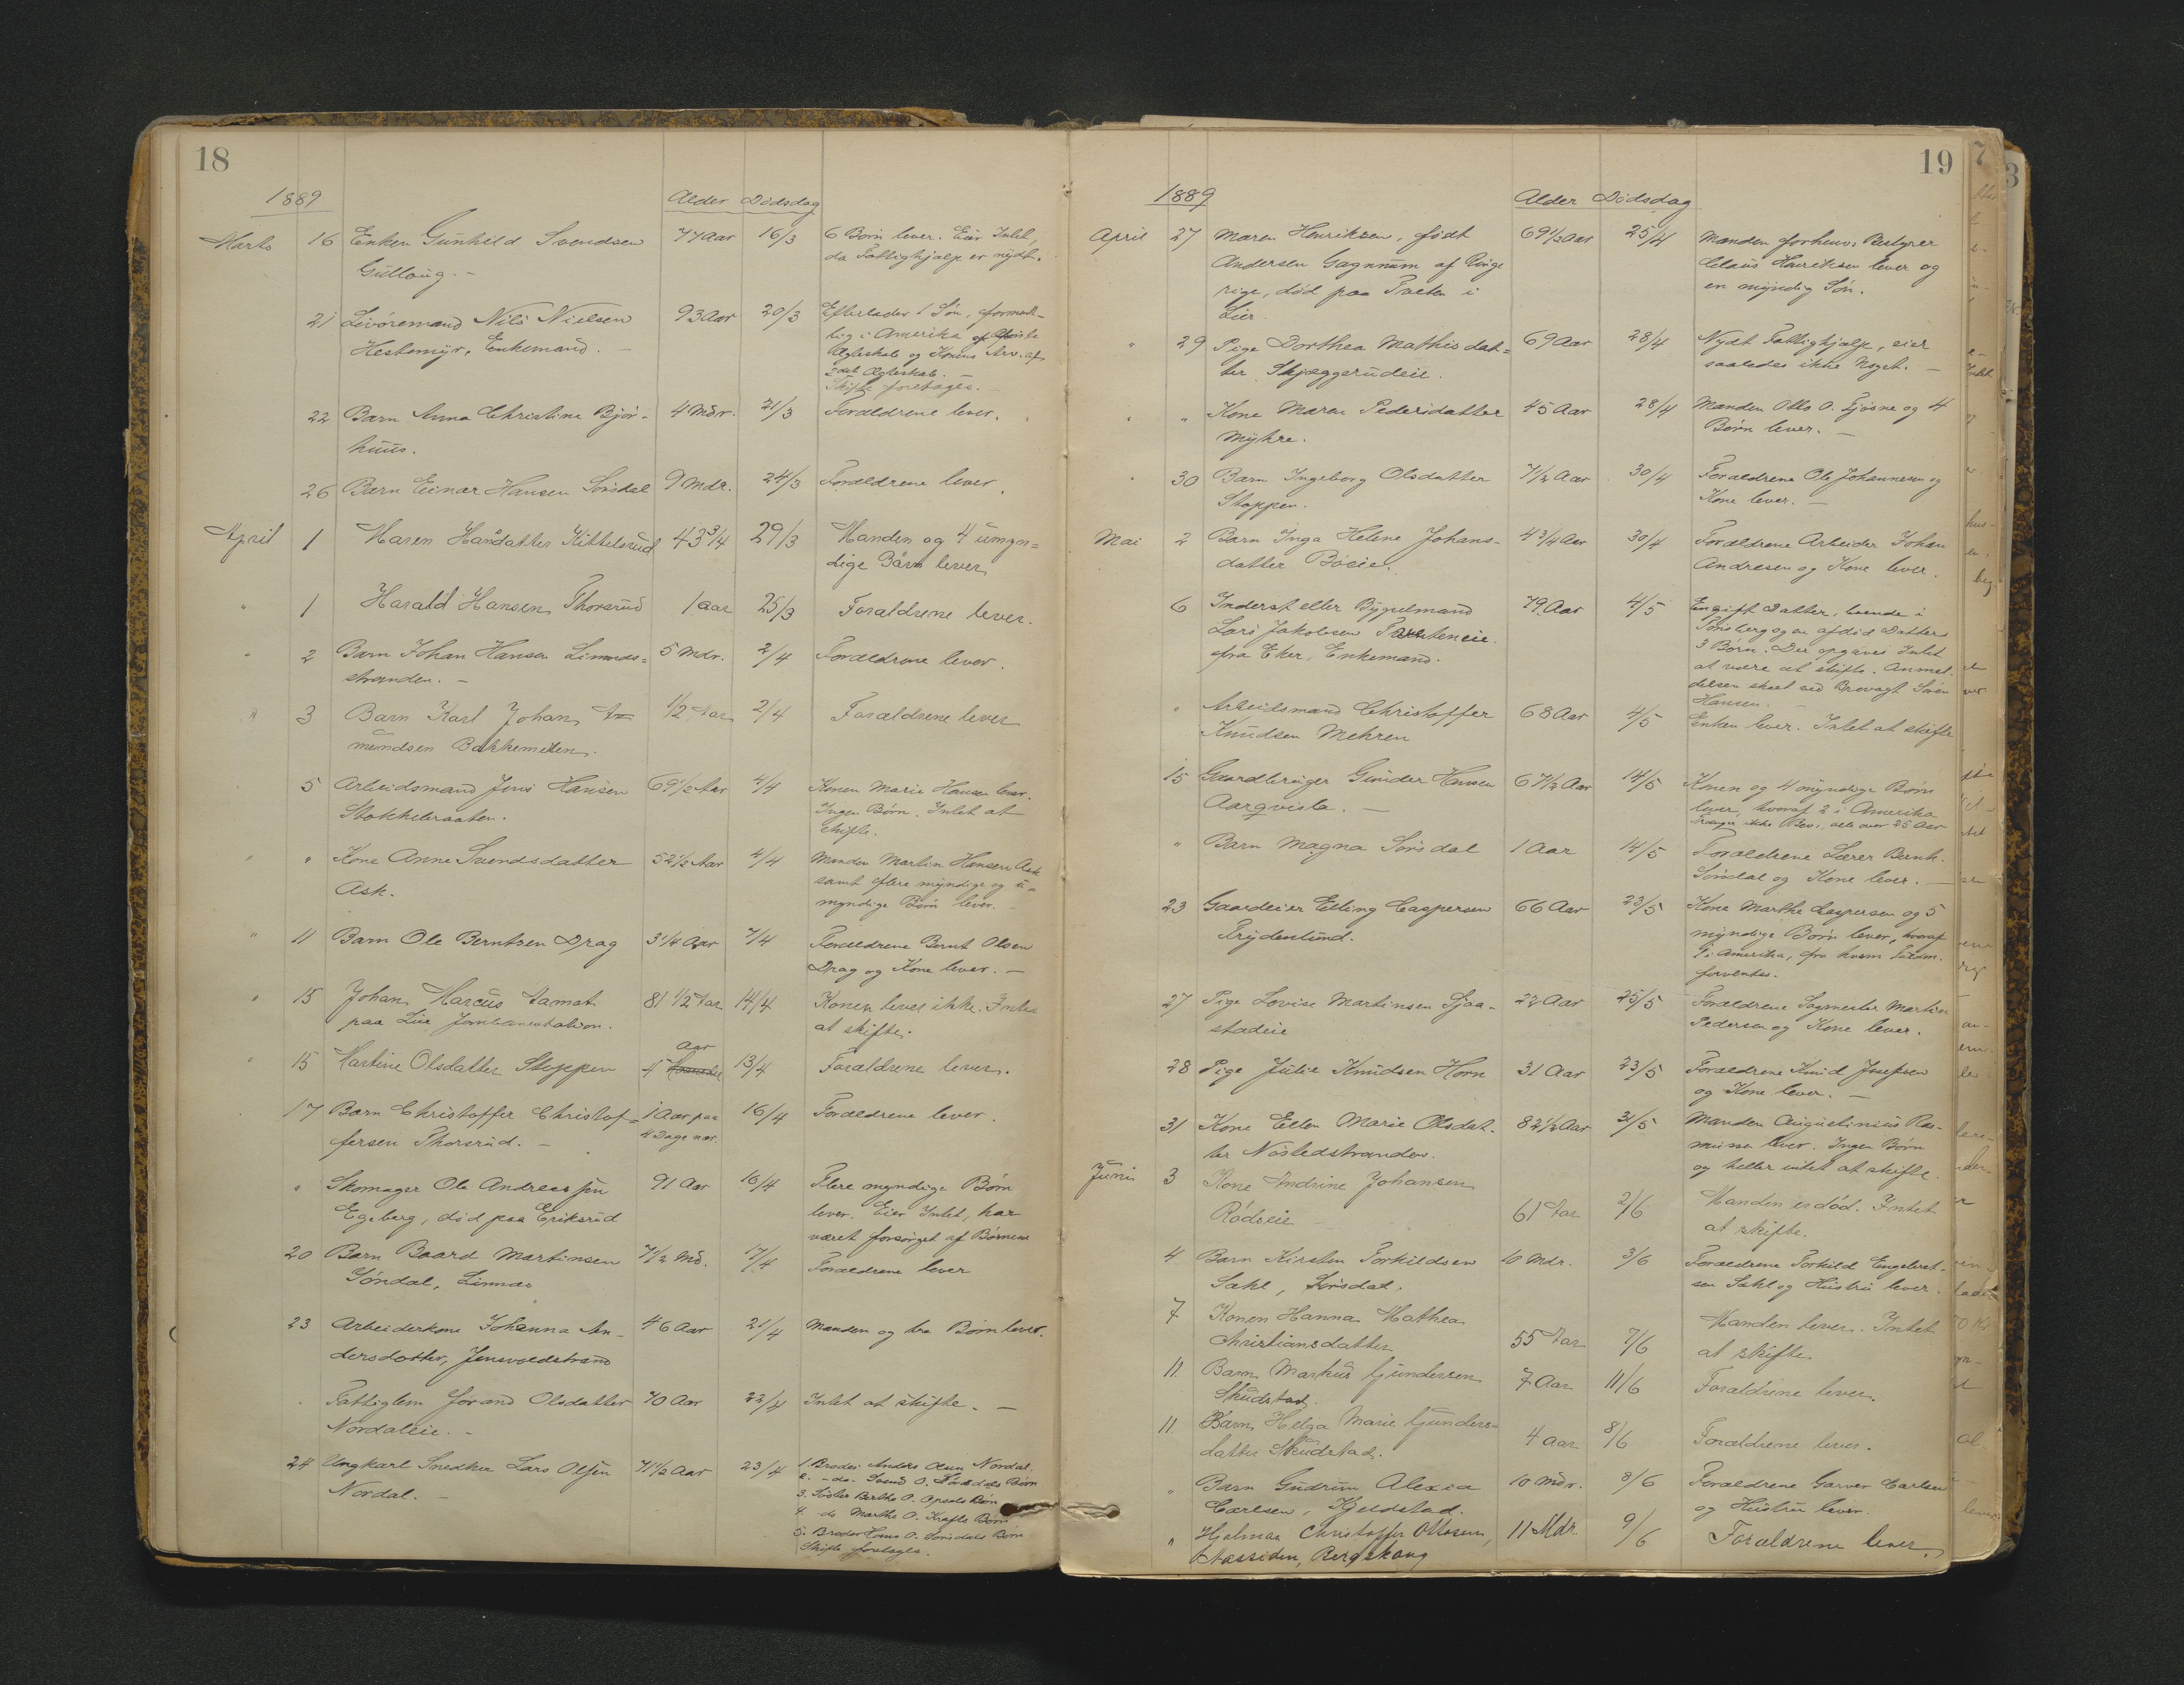 18
1889 Alder Dødsdag
Marts 16 Enken Gunhild Svendsen 77 Aar 16/3 6 Børn lever. Eier Intet,
Gullaug. - da Fattighjælp er nydt.
21 Livøremand Nils Nielsen 93 Aar 20/3 Efterlader 1 Søn, forment-
Hestemyr, Enkemand. - lig i Amerika af første
Ægteskab og Konens Arv. af
2det Ægteskab. -
Skifte foretages. -
22 Barn Anna Christine Bjør- 4 Mdr. 21/3 Forældrene lever.
huus.
26 Barn Einar Hansen Sørsdal 9 Mdr. 24/3 Forældrene lever.
April 1 Maren Hansdatter Kittelsrud 43 3/4 29/3 Manden og 4 umyn=
dige Børn lever
" 1 Harald Hansen Thorsrud 1 aar 25/3 Forældrene lever.
" 2 Barn Johan Hansen Linnes= 5 Mdr. 2/4 Forældrene lever.
stranden. -
" 3 Barn Karl Johan 1/2 Aar 2/4 Forældrene lever
mundsen Bakkemellen.
5 Arbeidsmand Jens Hansen 69 1/2 Aar 4/4 Konen Marie Hansen lever.
Stokkebraaten. Ingen Børn. Intet at
skifte.
" " Kone Anne Svendsdatter 52 1/2 Aar 4/4 Manden Martin Hansen Ask
Ask. samt flere myndige og u-
myndige Børn lever. -
" 11 Barn Ole Berntsen Drag 3 1/4 Aar 7/4 Forældrene Bernt Olsen
Drag og Kone lever. -
" 15 Johan Marcus Aamat 81 1/2 Aar 14/4 Konen lever ikke. Intet
paa Lier Jernbanestation. at skifte.
" 15 Martine Olsdatter Stoppen 4 Aar 13/4 Forældrene lever.
17 Barn Christoffer Christof= 1 Aar paa 16/4 Forældrene lever.
fersen Thorsrud. - 4 Dage nær.
" Skomager Ole Andreas sen 91 Aar 16/4 Flere myndige Børn
Egeberg, død paa Eriksrud lever. Eier Intet, har
været forsørget af Børnene
20 Barn Baard Martinsen 7 1/2 Md. 17/4 Forældrene lever
Søndal, Linnes
23 Arbeiderkone Johanna An- 46 Aar 21/4 Manden og tre Børn lever.
dersdatter, Jensvoldstrand
. Fattiglem Jørand Olsdatter 70 Aar 22/4 Intet at skifte. -
Nordaleie. -
24 Ungkarl Snedker Lars Olsen 71 1/2 Aar 23/4 1. Broder Anders Olsen Nordal.
Nordal. - 2. - do. Svend O. Børn
3. Søster Berthe O. Opsals Børn
4. do Marthe O. Krafts Børn
5. Broder Hans O. Sørsdals Børn
Skifte foretages.
19
1889 Alder Dødsdag
April 27 Maren Henriksen, født 69 1/2 Aar 25/4 Manden forhenv. Bestyrer
Andersen Gagnum af Ringe Claus Henriksen lever og
rige, død paa Tveten i en myndig Søn.
Lier.
" 29 Pige Dorthea Mathisdat= 69 Aar 28/4 Nydt Fattighjælp, eier
ter Skjæggerudeie. saaledes ikke Noget. -
" " Kone Maren Pedersdatter 45 Aar 28/4 Manden Otto O. Fjøsne og 4
Myhre. Børn lever. -
" 30 Barn Ingeborg Olsdatter 7 1/2 Aar 30/4 Forældrene Ole Johannesen og
Stoppen. Kone lever. -
Mai 2 Barn Inga Helene Johans- 4 3/4 Aar 30/4 Forældrene Arbeider Johan
datter Bøeie. Andresen og Kone lever.
6 Inderst eller Bygselmand 79 Aar 4/5 En gift Datter, boende i
Lars Jakobsen Tveteneie Tønsberg og en afdød Datters
fra Eker, Enkemand. 3 Børn. Der opgaves Intet
at være at skifte. Anmel-
delsen skeet ved Brovogt Søren
Hansen. -
" Arbeidsmand Christoffer 68 Aar 4/5 Enken lever. Intet at skifte
Knudsen Mehren
15 Gaardbruger Gunder Hansen 67 1/2 Aar 14/5 Konen og 4 myndige Børn
Aarqvisla. - lever, hvoraf 2 i Amerika
ikke Bev., alle over 25 Aar
" Barn Magna Sørsdal 1 Aar 14/5 Forældrene Lærer Bernh.
Sørsdal og Kone lever. -
23 Gaardeier Elling Caspersen 66 Aar 23/5 Kone Marthe Caspersen og 5
Frydenlund. myndige Børn lever, hvoraf
1 i Amerika, fra hvem
forventes.
27 Pige Lovise Martinsen Sjaa- 22 Aar 25/5 Forældrene Sagmester Martin
stadeie Pedersen og Kone lever.
28 Pige Julie Knudsen Horn 31 Aar 23/5 Forældrene Knud Josefsen
og Kone lever. -
31 Kone Ellen Marie Olsdat- 82 1/2 Aar 31/5 Manden Augustinius Ras-
ter Nøstedstranden. mussen lever. Ingen Børn
og heller intet at skifte.
Juni 3 Kone Andrine Johansen 61 Aar 2/6 Manden er død. Intet
Rødseie at skifte.
4 Barn Kirsten Torkildsen 10 Mdr. 3/6 Forældrene Torkild Engebret-
Sahl, Sørsdal. sen Sahl og Hustru lever.
7 Konen Hanna Mathea Manden lever. Intet
Christiansdatter 55 Aar 7/6 at skifte
11. Barn Markus Gundersen 7 Aar 11/6 Forældrene lever.
Skudstad.
11 Barn Helga Marie Gunders- 4 aar 8/6 Forældrene lever.
datter Skudstad.
" Barn Gudrun Alexia 10 Mdr. 8/6 Forældrene Garver Carlsen
Carlsen, Kjeldstad. og Hustru lever.
" Hjalmar Christoffer Ottosen, 11 Mdr. 9/6 Forældrene lever.
Aassiden, Bergskaug